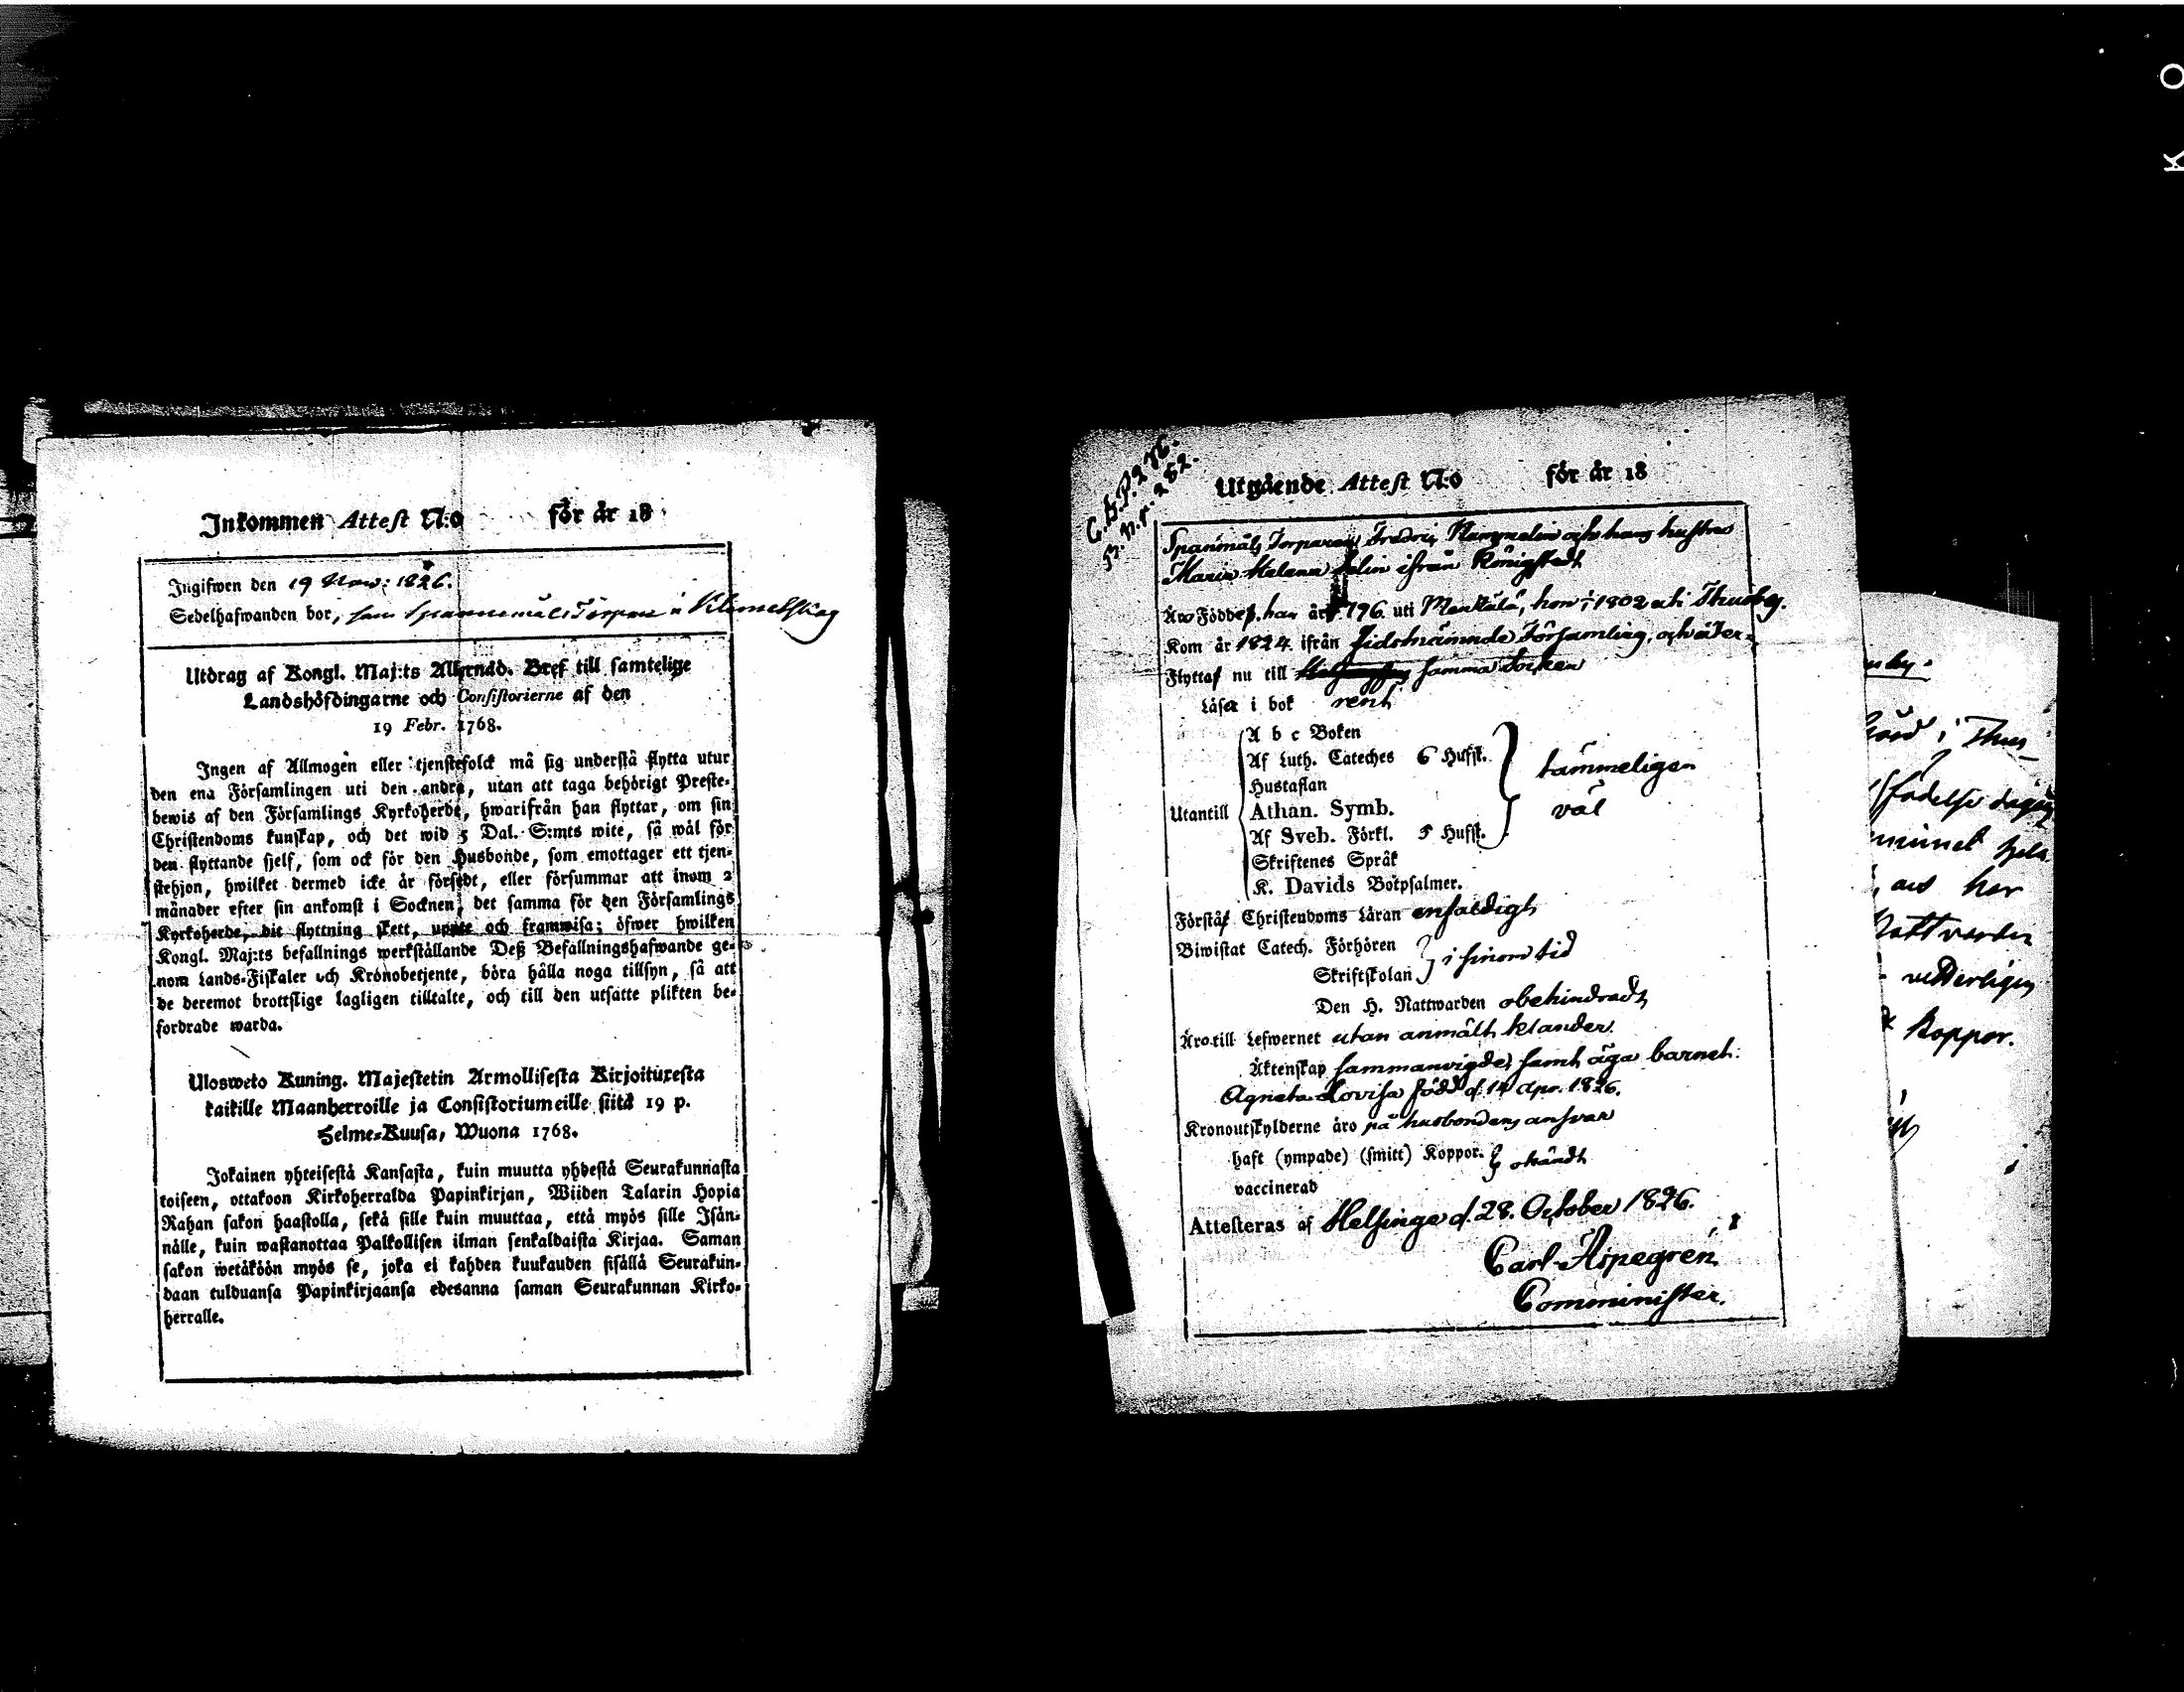 K O
Inkommen Attest N:o för år 18
Ingifwen den 19 Nov: 1826.
Sedelhafwanden bor, som Spannemåls Torpare å Klemetskog
Utdrag af Kongl. Maj:ts Allernåd. Bref till samtelige
Landshöfdingarne och Consistorierne af den
19 Febr. 1768.
Ingen af Allmogen eller tjenstefolck må sig understå flytta utur
den ena Församlingen uti den andra, utan att taga behörigt Preste-
bewis af den Församlings Kyrkoherde, hwarifrån han flyttar, om sin
Christendoms kunskap, och det wid 5 Dal. S:mts wite, så wäl för
den flyttande sjelf, som ock för den Husbonde, som emottager ett tjen-
stehjon, hwilket dermed icke är försedt, eller försummar att inom 2
månader efter sin ankomst i Socknen, det samma för den Församlings
Kyrkoherde, dit flyttning skett, uppte och framwisa; öfwer hwilken
Kongl. Maj:ts befallnings werkställande Deß Befallningshafwande ge-
nom Lands-Fiskaler och Kronobetjente, böra hålla noga tillsyn, så att
de deremot brottslige lagligen tilltalte, och till den utsatte plikten be-
fordrade warda.
Ulosweto Kuning. Majestetin Armollisesta Kirjoituxesta
kaikille Maanherroille ja Consistoriumeille siitä 19 p.
Helme-Kuusa, Wuona 1768.
Jokainen yhteisestä Kansasta, kuin muutta yhdestä Seurakunnasta
toiseen, ottakoon Kirkoherralda Papinkirjan, Wiiden Talarin Hopia
Rahan sakon haastolla, sekä sille kuin muuttaa, että myös sille Isän-
nälle, kuin wastanottaa Palkollisen ilman senkaldaista Kirjaa. Saman
sakon wetäköön myös se, joka ei kahden kuukauden sisällä Seurakun-
daan tulduansa Papinkirjaansa edesanna saman Seurakunnan Kirko-
herralle.
C.B.P. 276.
B.N.r. 252.
Utgående Attest N:o för år 18
Spanmåls Torparen Fredric Nummelin och hans hustru
Maria Helena ifrån Königstedt
Äro Födde, han år 1796 uti Menkälä, hon i 1802 uti Thusby.
Kom år 1824 ifrån sidstnämnde Församling, och åter-
Flytta nu till samma Socken
Läsa i bok rent
A b c Boken
Af Luth. Cateches 6 Hufst.
Hustaflan
Utantill Athan. Symb. tämmeligen väl
Af Sveb. Förkl. 5 Hufst.
Skriftenes Språk
K. Davids Botpsalmer.
Förstå Christendoms Läran enfaldigt
Biwistat Catech. Förhören i sinom tid
Skriftskolan
Den H. Nattwarden obehindradt
Äro till Lefwernet utan anmält klander.
Äktenskap sammanvigde, samt äga barnet:
Agneta Lovisa född d. 14 Apr. 1826.
Kronoutskylderne äro på husbondens ansvar
haft (ympade) (smitt) Koppor. okändt
vaccinerad
Attesteras af Helsinge d. 28. October 1826.
Carl Aspegren
Comminister.
i Thus-
födelse
har
Nattvarden
Koppor.